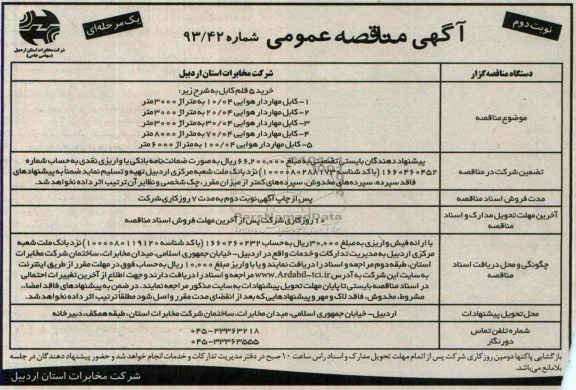 نوبت دوم
آگهی مناقصه عمومی شماره ۹۳/۴۲
یک مرحله‌ای
شرکت مخابرات استان اردبیل
(سهامی خاص)
دستگاه مناقصه گزار
شرکت مخابرات استان اردبیل
موضوع مناقصه
خرید ۵ قلم کابل به شرح زیر:
۱- کابل مهاردار هوایی ۱۰/۰۴ به متراژ ۳۰۰۰ متر
۲- کابل مهاردار هوایی ۲۰/۰۴ به متراژ ۳۰۰۰ متر
۳- کابل مهاردار هوایی ۳۰/۰۴ به متراژ ۳۰۰۰ متر
۴- کابل مهاردار هوایی ۷۰/۰۴ به متراژ ۸۰۰۰ متر
۵- کابل مهاردار هوایی ۱۰۰/۰۴ به متراژ ۶۰۰۰ متر
تضمین شرکت در مناقصه
پیشنهاد دهندگان بایستی تضمینی به مبلغ ۶۶,۲۰۰,۰۰۰ ریال به صورت ضمانت نامه بانکی یا واریزی نقدی به حساب شماره
۱۶۶۰۴۶۰۴۵۲ (با کد شناسه ۱۰۰۰۰۸۰۲۸۸۱۷۳) نزد بانک ملت شعبه مرکزی اردبیل تهیه و تسلیم نماید ضمناً به پیشنهادهای
فاقد سپرده، سپرده‌های مخدوش، سپرده‌های کمتر از میزان مقرر، چک شخصی و نظایر آن ترتیب اثر داده نخواهد شد.
مدت فروش اسناد مناقصه
پس از چاپ آگهی نوبت دوم به مدت ۷ روز کاری شرکت
آخرین مهلت تحویل مدارک و اسناد مناقصه
۱۰ روز کاری شرکت پس از آخرین مهلت فروش اسناد مناقصه
چگونگی و محل دریافت اسناد مناقصه
با ارائه فیش واریزی به مبلغ ۳۰,۰۰۰ ریال به حساب ۱۶۶۰۲۶۰۲۳۲ (با کد شناسه ۱۰۰۰۰۸۰۱۱۹۱۲۰) نزد بانک ملت شعبه
مرکزی اردبیل به مدیریت تدارکات و خدمات واقع در اردبیل- خیابان جمهوری اسلامی، میدان مخابرات، ساختمان شرکت مخابرات
استان، طبقه دوم مراجعه و اسناد را دریافت نمایند و یا با واریز مبلغ ۱۰,۰۰۰ ریال به حساب فوق در مهلت مقرر از طریق اینترنت
به سایت این شرکت به آدرس www.Ardabil-tci.ir مراجعه و اسناد را دریافت دارند و جهت اطلاع از آخرین تغییرات احتمالی
در اسناد مناقصه بایستی تا پایان مهلت تحویل پیشنهادات به سایت مذکور مراجعه نمایند. در ضمن به پیشنهادهای فاقد امضاء،
مشروط، مخدوش، فاقد لاک و مهر و پیشنهادهایی که بعد از انقضای مدت مقرر واصل شود مطلقاً ترتیب اثر داده نخواهد شد.
محل تحویل پیشنهادات
اردبیل- خیابان جمهوری اسلامی، میدان مخابرات، ساختمان شرکت مخابرات استان، طبقه همکف، دبیرخانه
شماره تلفن تماس
۰۴۵-۳۳۳۶۳۲۱۸
دورنگار
۰۴۵-۳۳۳۶۳۵۵۵
بازگشایی پاکتها دومین روز کاری شرکت پس از اتمام مهلت تحویل مدارک و اسناد راس ساعت ۱۰ صبح در دفتر مدیریت تدارکات و خدمات انجام خواهد شد و حضور پیشنهاد دهندگان در جلسه
بلامانع می‌باشد.
شرکت مخابرات استان اردبیل